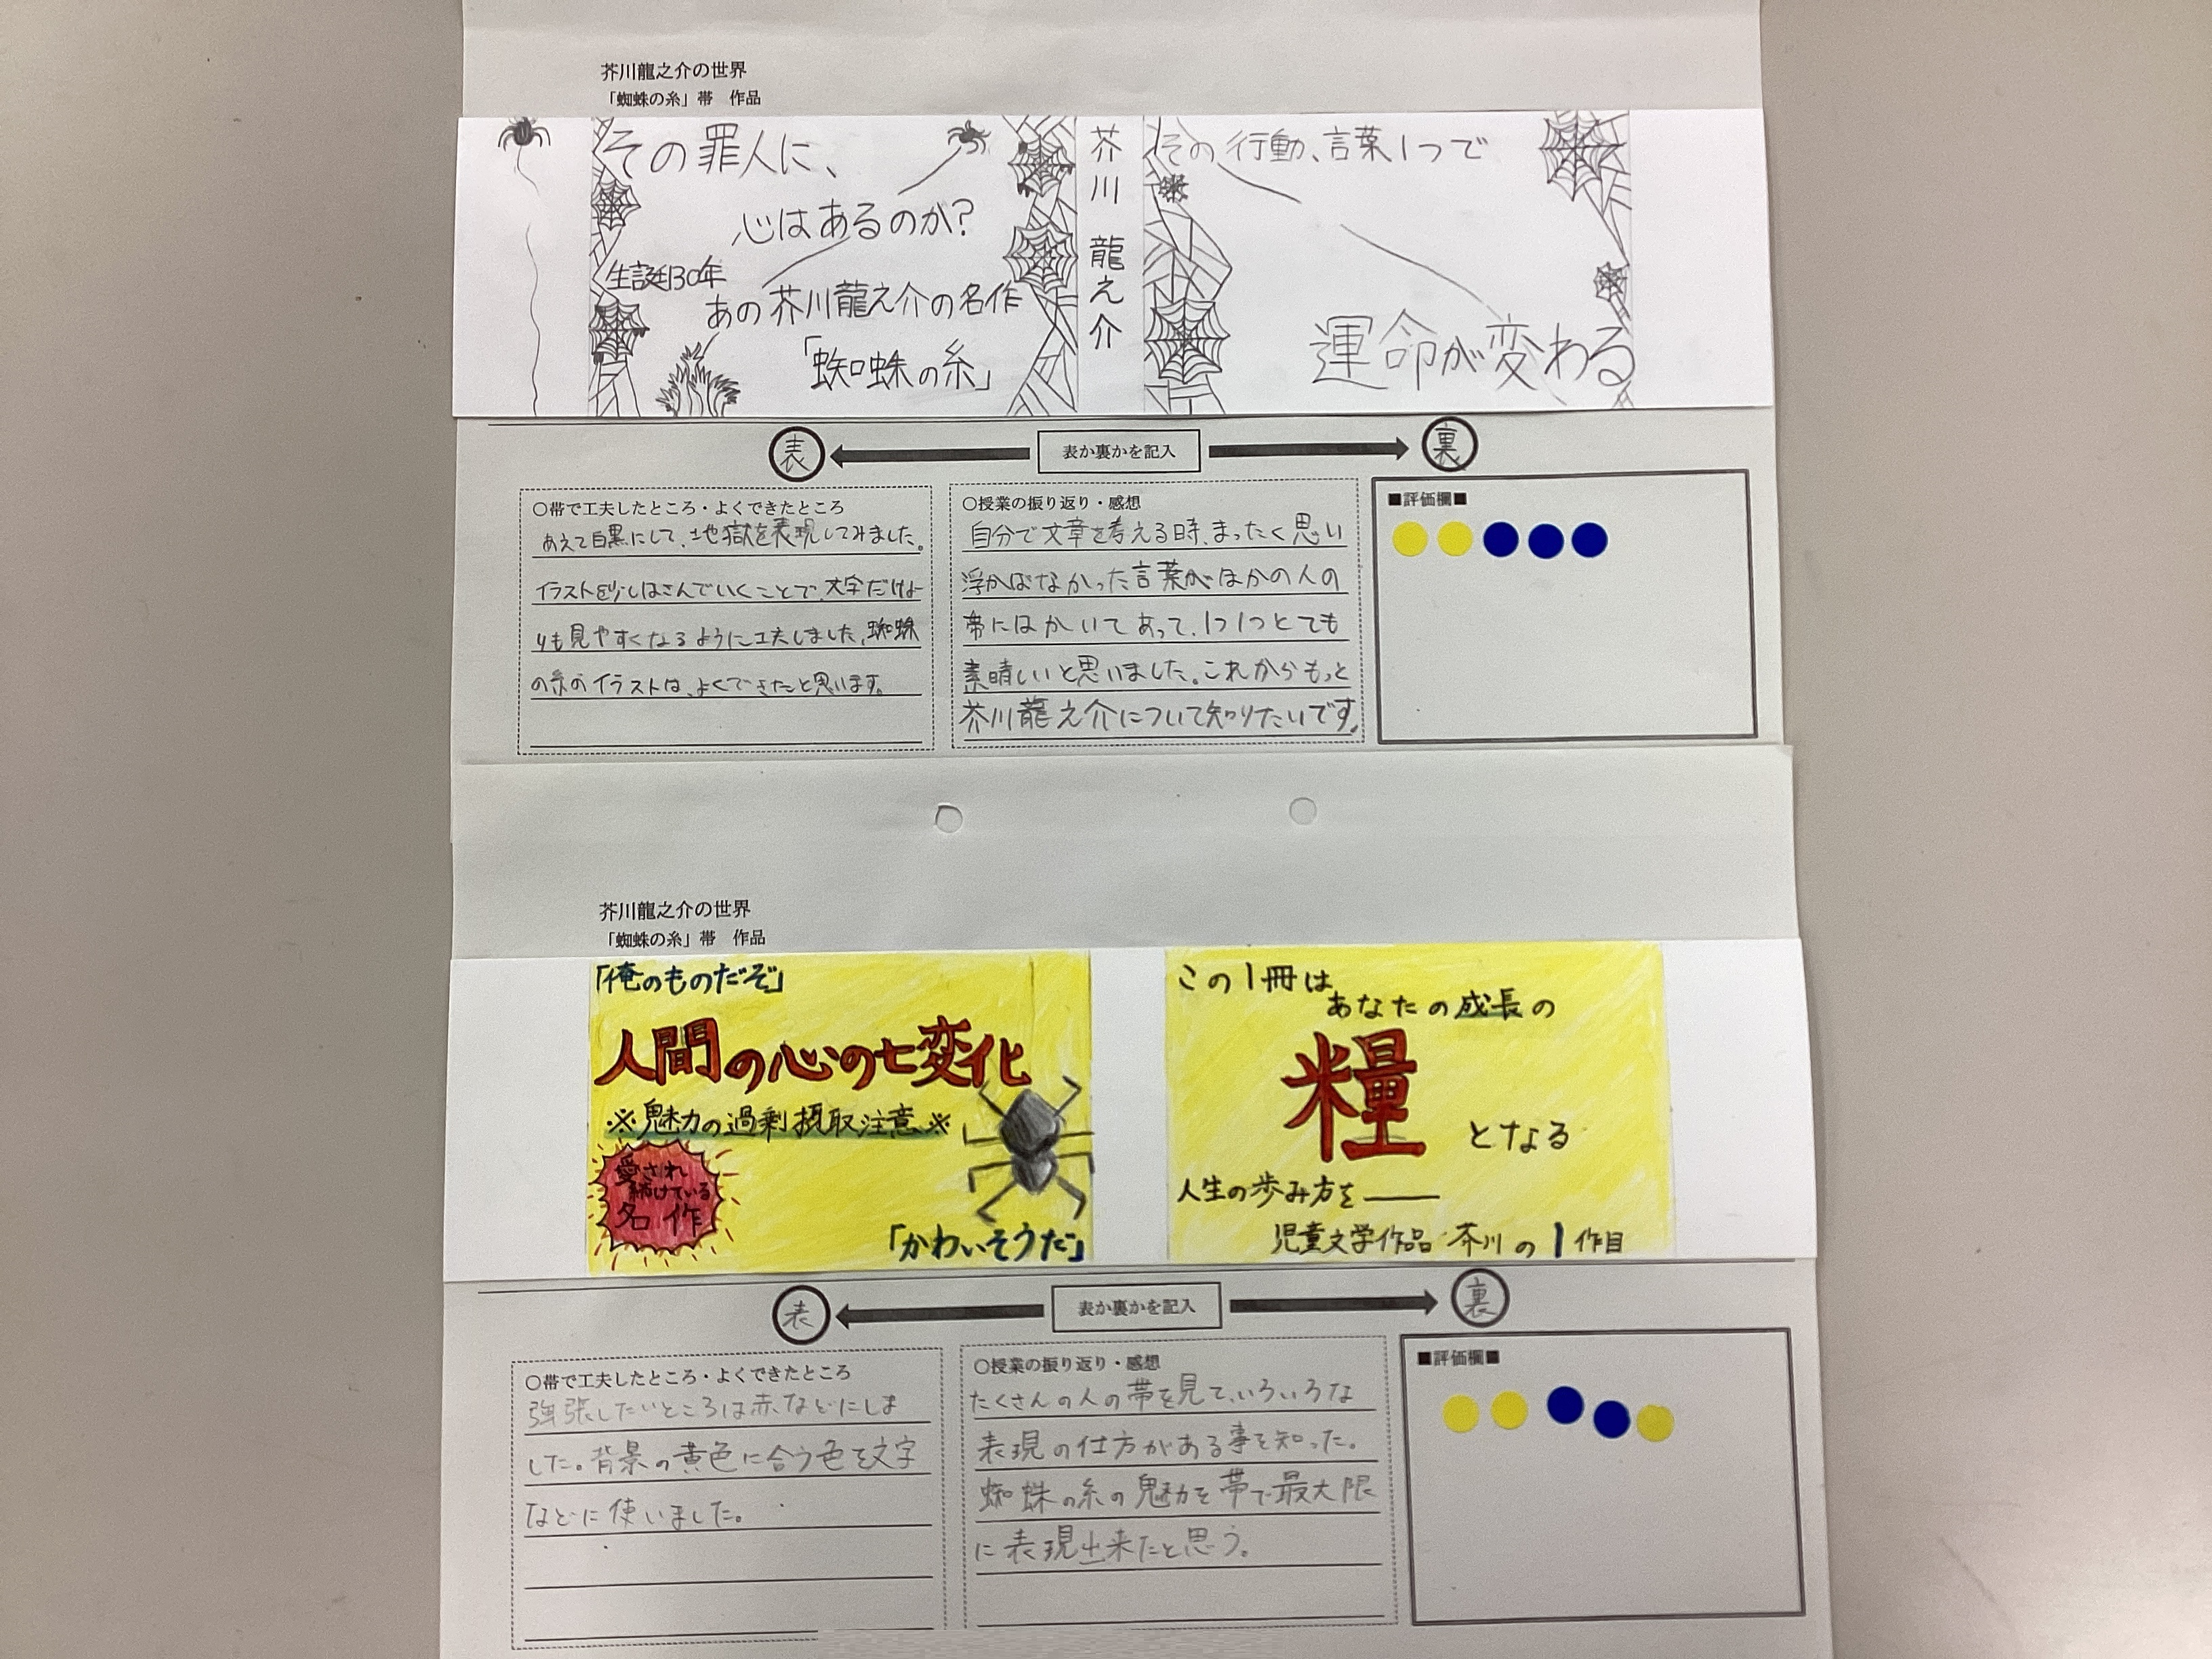 芥川龍之介の世界
「蜘蛛の糸」帯　作品
その罪人に、
心はあるのか?
生誕130年
あの芥川龍之介の名作
「蜘蛛の糸」
芥川 龍之介
その行動、言葉1つで
運命が変わる
表
表か裏かを記入
裏
○帯で工夫したところ・よくできたところ
あえて白黒にして、地獄を表現してみました。
イラストを少しはさんでいくことで、文字だけよ
りも見やすくなるように工夫しました。蜘蛛
の糸のイラストは、よくできたと思います。
○授業の振り返り・感想
自分で文章を考える時、まったく思い
浮かばなかった言葉がほかの人の
帯にはかいてあって、1つ1つとても
素晴しいと思いました。これからもっと
芥川龍之介について知りたいです。
■評価欄■
芥川龍之介の世界
「蜘蛛の糸」帯　作品
「俺のものだぞ」
人間の心の七変化
※魅力の過剰摂取注意※
愛され
続けている
名作
「かわいそうだ」
この1冊は
あなたの成長の
糧
となる
人生の歩み方を――
児童文学作品 芥川の1作目
表
表か裏かを記入
裏
○帯で工夫したところ・よくできたところ
強張したいところは赤などにしま
した。背景の黄色に合う色を文字
などに使いました。
○授業の振り返り・感想
たくさんの人の帯を見て、いろいろな
表現の仕方がある事を知った。
蜘蛛の糸の魅力を帯で最大限
に表現出来たと思う。
■評価欄■